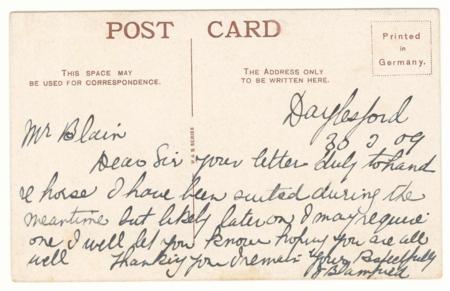 POST CARD
Printed
in
Germany.
THIS SPACE MAY
BE USED FOR CORRESPONDENCE.
THE ADDRESS ONLY
TO BE WRITTEN HERE.
Daylesford
30 3 09
Mr Blain
Dear Sir your letter duly to hand
re horse I have been suited during the
meantime but likely later on I may require
one I will let you know hoping you are all
well Thanking you I remain Yours Respectfully